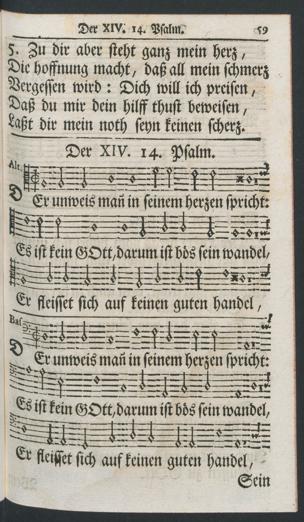 Der XIV. 14. Psalm. 59
5. Zu dir aber steht ganz mein herz,
Die hoffnung macht, daß all mein schmerz
Vergessen wird: Dich will ich preisen,
Daß du mir dein hilff thust beweisen,
Laßt dir mein noth seyn keinen scherz.
Der XIV. 14. Psalm.
Alt.
DEr unweis mañ in seinem herzen spricht:
Es ist kein GOtt, darum ist bös sein wandel,
Er fleisset sich auf keinen guten handel,
Baß
DEr unweis mañ in seinem herzen spricht:
Es ist kein GOtt, darum ist bös sein wandel,
Er fleisset sich auf keinen guten handel,
Sein